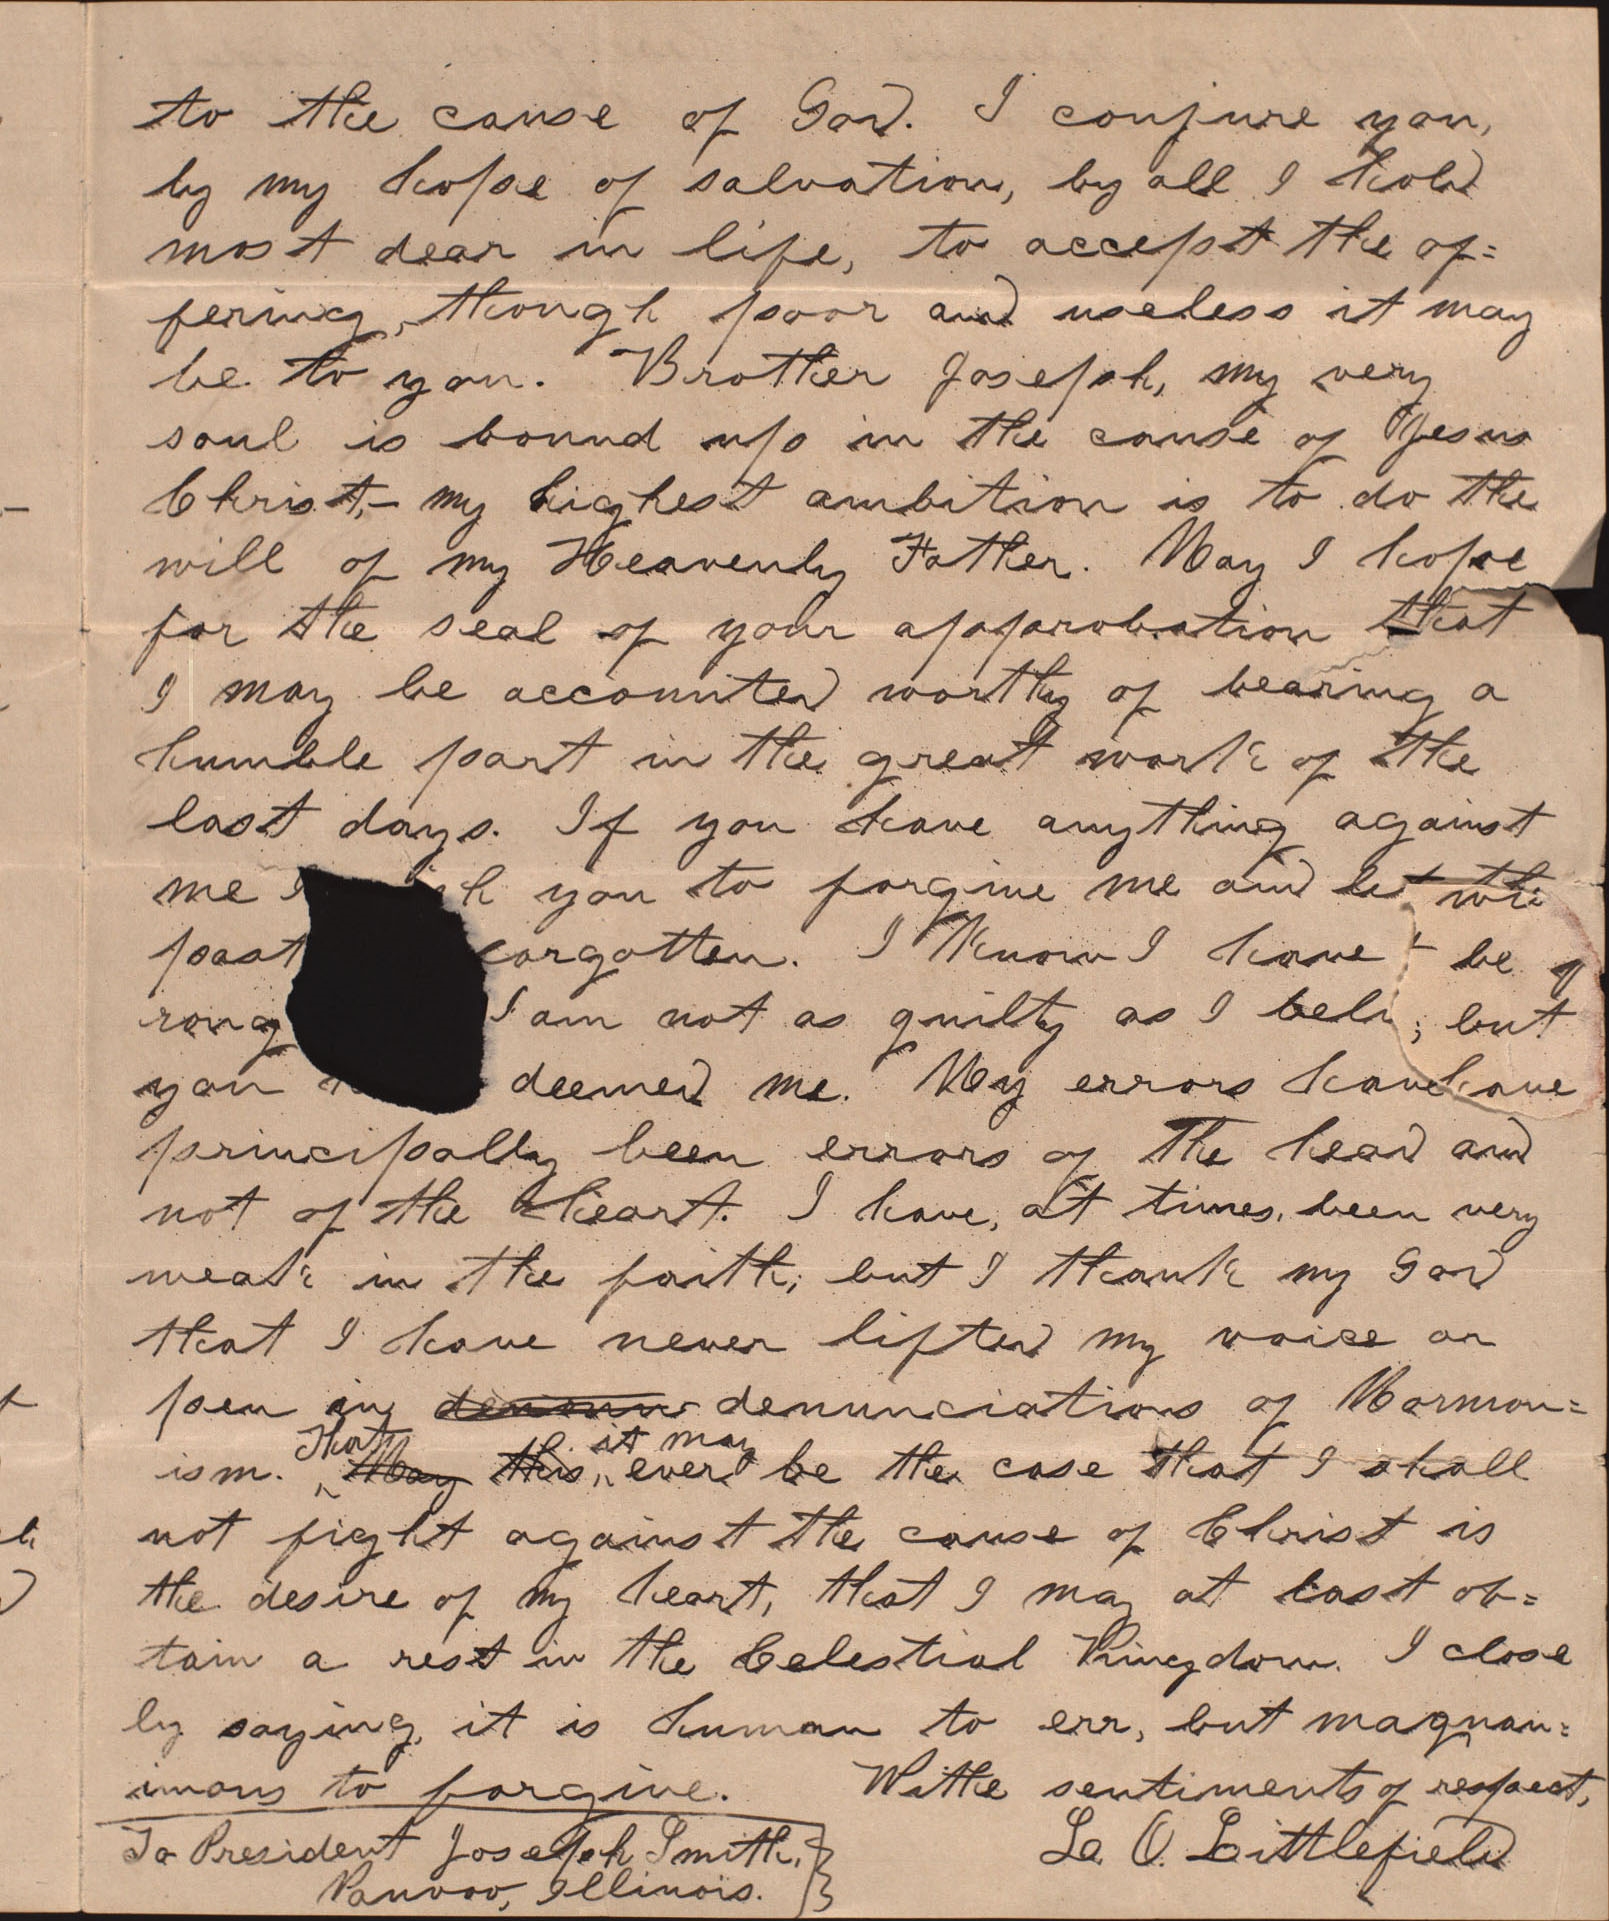 to the cause of God. I conjure you,
by my hope of salvation, by all I hold
most dear in life, to accept the of=
fering, though poor and useless it may
be to you. Brother Joseph, my very
soul is bound up in the cause of Jesus
Christ,– my highest ambition is to do the
will of my Heavenly Father. May I hope
for the seal of your approbation that
I may be accounted worthy of bearing a
humble part in the great work of the
last days. If you have anything against
me I you to forgive me and let
past forgotten. I know I have be
rong I am not as guilty as I ; but
you deemed me. My errors have have
principally been errors of the head and
not of the heart. I have, at times, been very
weak in the faith; but I thank my God
that I have never lifted my voice or
pen in denunciations of Mormon=
That it may
ism. May this ever be the case that I shall
not fight against the cause of Christ is
the desire of my heart, that I may at last ob=
tain a rest in the Celestial Kingdom. I close
by saying, it is human to err, but magnan=
imous to forgive. Withe sentiments of respect,
To President Joseph Smith, Lo. O. Littlefield
Nauvoo, Illinois.